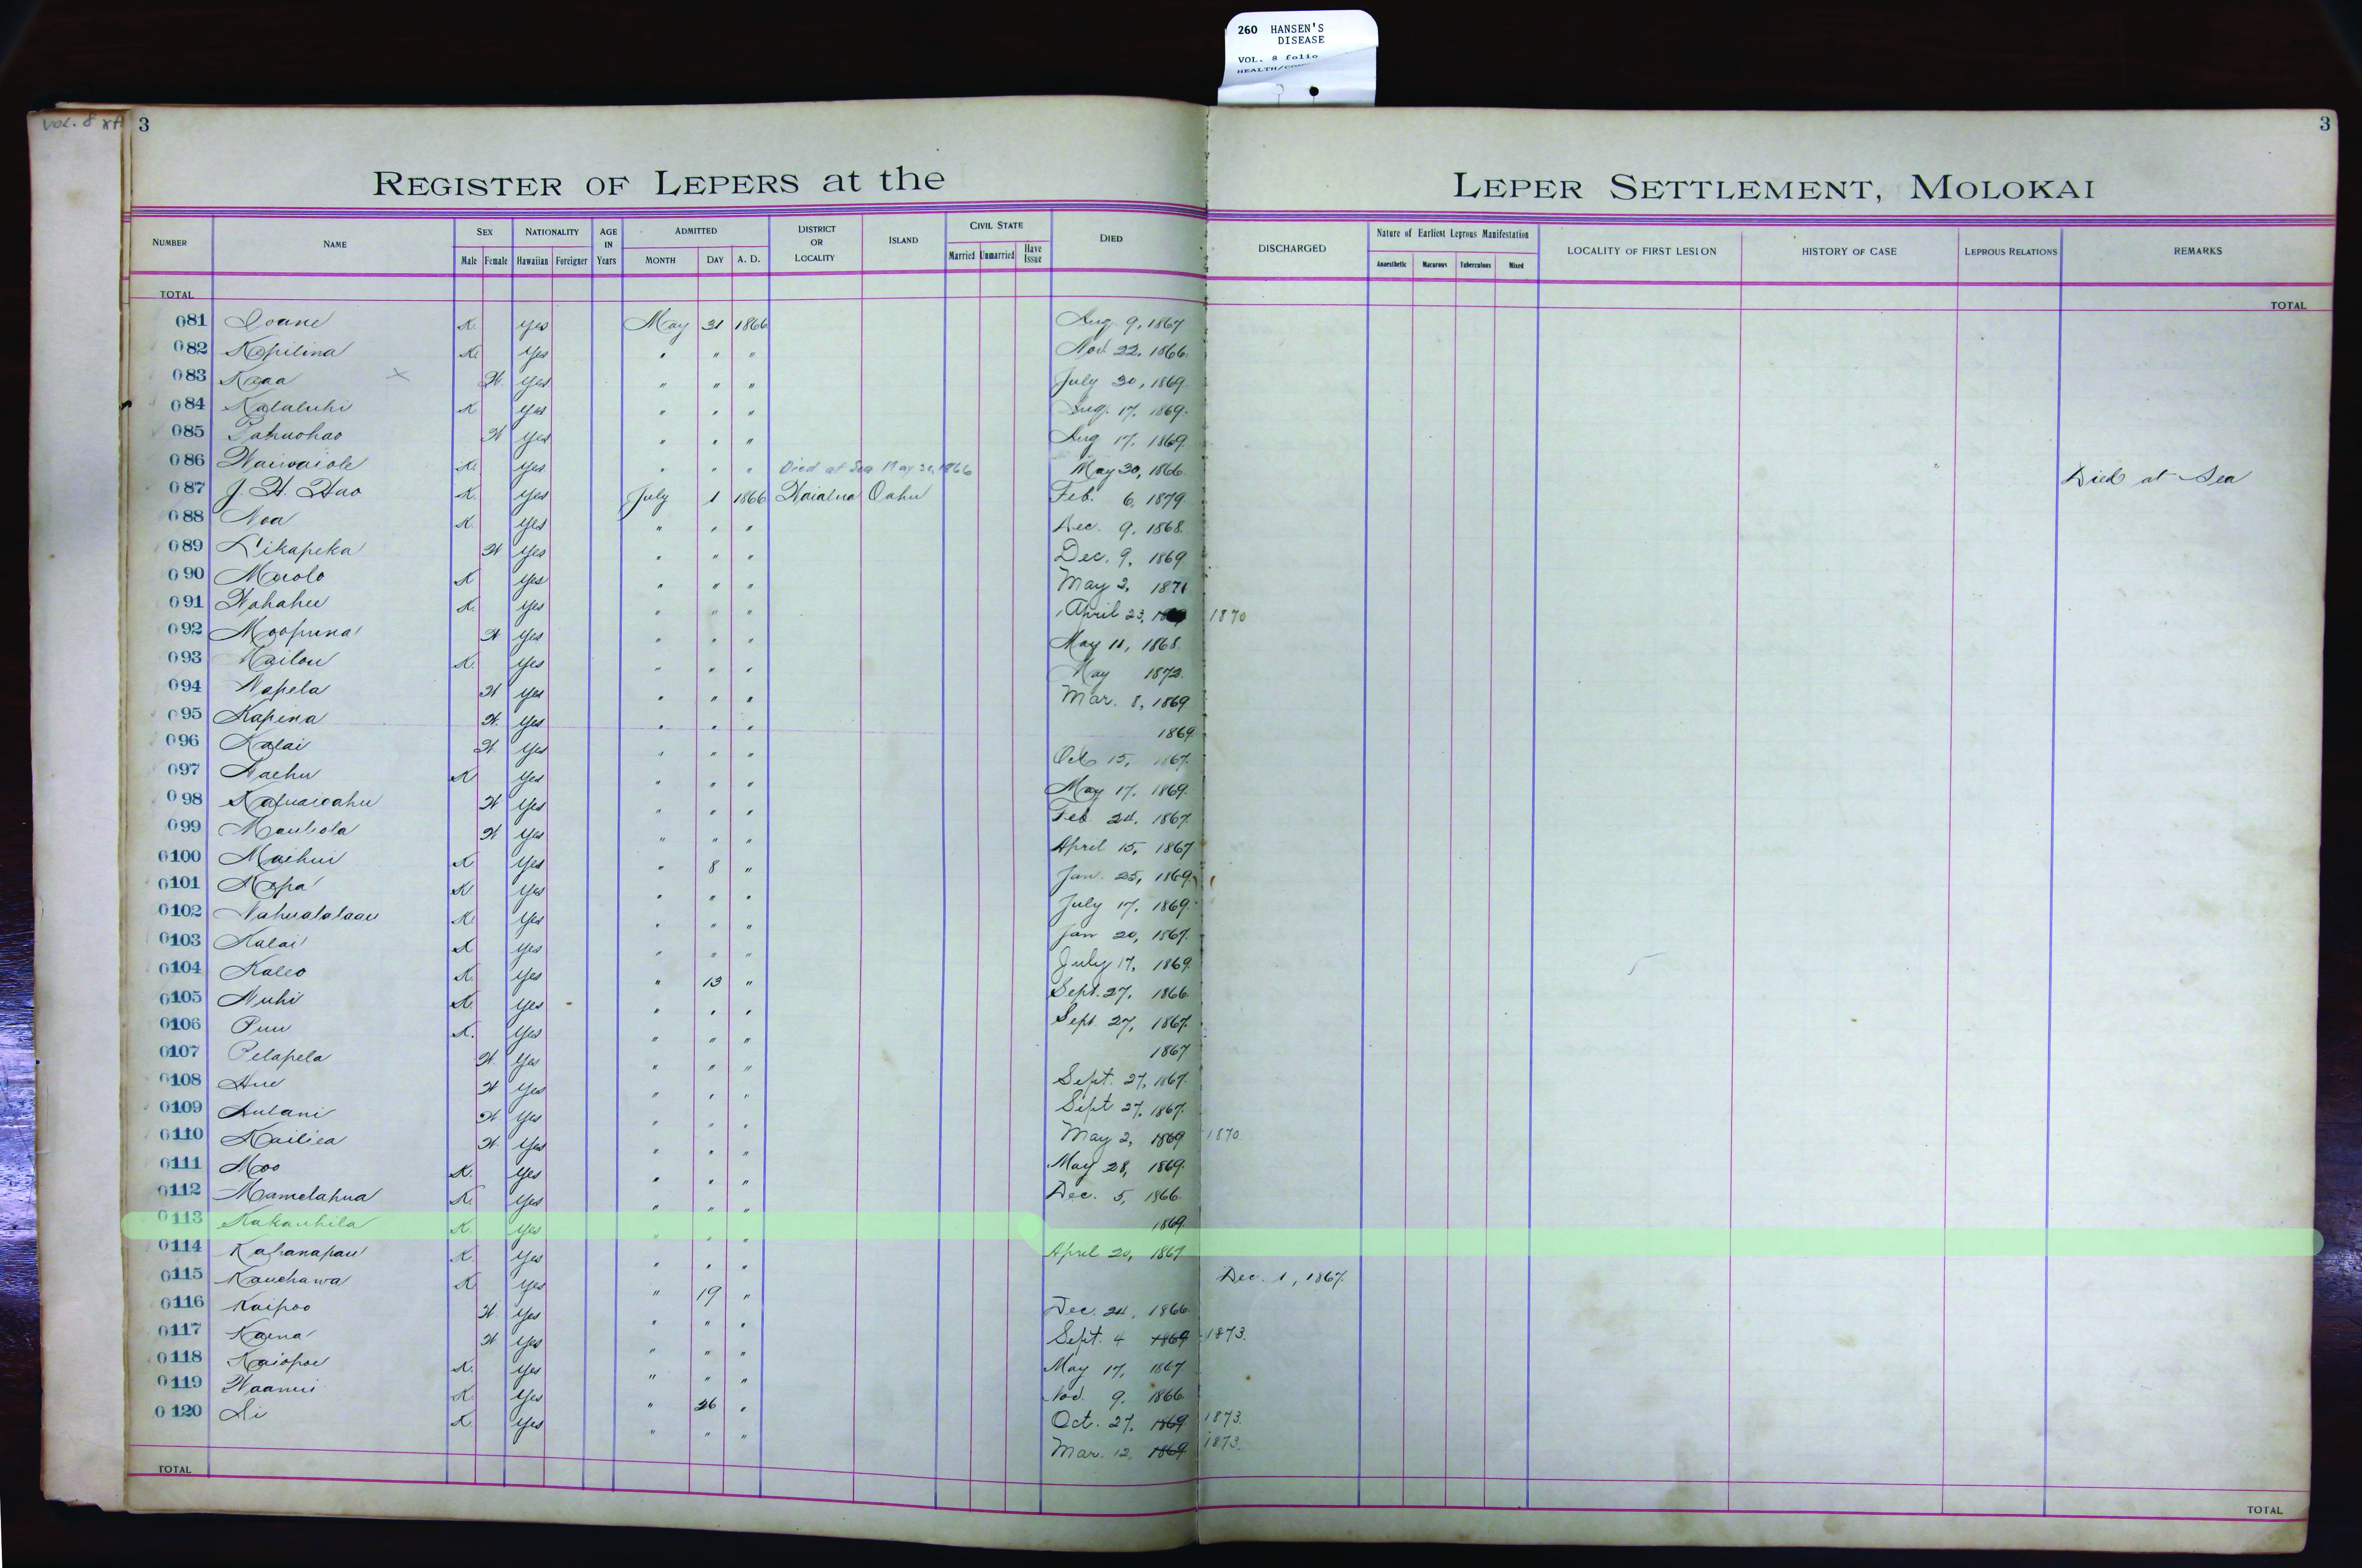 260 HANSEN'S
DISEASE
VOL. 8 folio
VOL. 8
3
3
REGISTER OF LEPERS at the LEPER SETTLEMENT, MOLOKAI
NUMBER NAME SEX Male Female NATIONALITY Hawaiian Foreigner AGE IN Years ADMITTED MONTH DAY A. D. DISTRICT OR LOCALITY ISLAND CIVIL STATE Married Unmarried Have Issue DIED DISCHARGED Nature of Earliest Leprous Manifestation Anaesthetic Macurous Tuberculous Mixed LOCALITY OF FIRST LESION HISTORY OF CASE LEPROUS RELATIONS REMARKS
TOTAL TOTAL
081 Ioane K. Yes May 31 1866 Aug. 9, 1867
082 Kapilina K. Yes " " " Nov. 22, 1866
083 Kaaa × W. Yes " " " July 30, 1869
084 Kalaluhi K Yes " " " Aug. 17, 1869
085 W Yes " " " Aug 17, 1869
086 Waiwaiole K. Yes " " " Died at Sea May 30, 1866 May 30, 1866 Died at Sea
087 J. H. Hao K. Yes July 1 1866 Waialua Oahu Feb. 6, 1879
088 Noa K. Yes " " " Dec. 9, 1868
089 Likapeka W Yes " " " Dec. 9, 1869
090 Maolo K Yes " " " May 2, 1871
091 Wahahee K. Yes " " " April 23, 1870
092 Moopuna W Yes " " " May 11, 1868
093 Kailou K. Yes " " " May 1872
094 Napela W Yes " " " Mar. 8, 1869
095 Kapena W. Yes " " " 1869
096 Kalai W Yes " " " Oct 15, 1867
097 Naehu K Yes " " " May 17, 1869
098 W Yes " " " Feb. 24, 1867
099 Mauliola W Yes " " " April 15, 1867
0100 Maihui K Yes " 8 " Jan. 25, 1869
0101 Mopa K Yes " " " July 17, 1869
0102 Nahualalaau K. Yes " " " Jan 20, 1867
0103 Kalai K Yes " " " July 17, 1869
0104 Kaleo K. Yes " 13 " Sept. 27, 1866
0105 Nuhi K. Yes " " " Sept. 27, 1867
0106 Puu K. Yes " " " 1867
0107 Pelapela W Yes " " " Sept. 27, 1867
0108 Hue W Yes " " " Sept 27, 1867
0109 Lulani W. Yes " " " May 2, 1869 1870
0110 Kailiea W. Yes " " " May 28, 1869
0111 Moo K. Yes " " " Dec. 5, 1866
0112 Mamelahua K. Yes " " " 1869
0113 Kakauhila K. Yes " " " April 20, 1867
0114 Kahanapau K. Yes " " " Dec. 1, 1867
0115 Kauehawa K. Yes " 19 " Dec. 24, 1866
0116 Kaipoo W. Yes " " " Sept. 4 1869 1873.
0117 Kaena W Yes " " " May 17, 1867
0118 Kaiopoe K. Yes " " " Nov. 9, 1866
0119 Waanui K. Yes " 26 " Oct. 27, 1869 1873.
0120 Li K. Yes " " " Mar. 12, 1869 1873.
TOTAL TOTAL